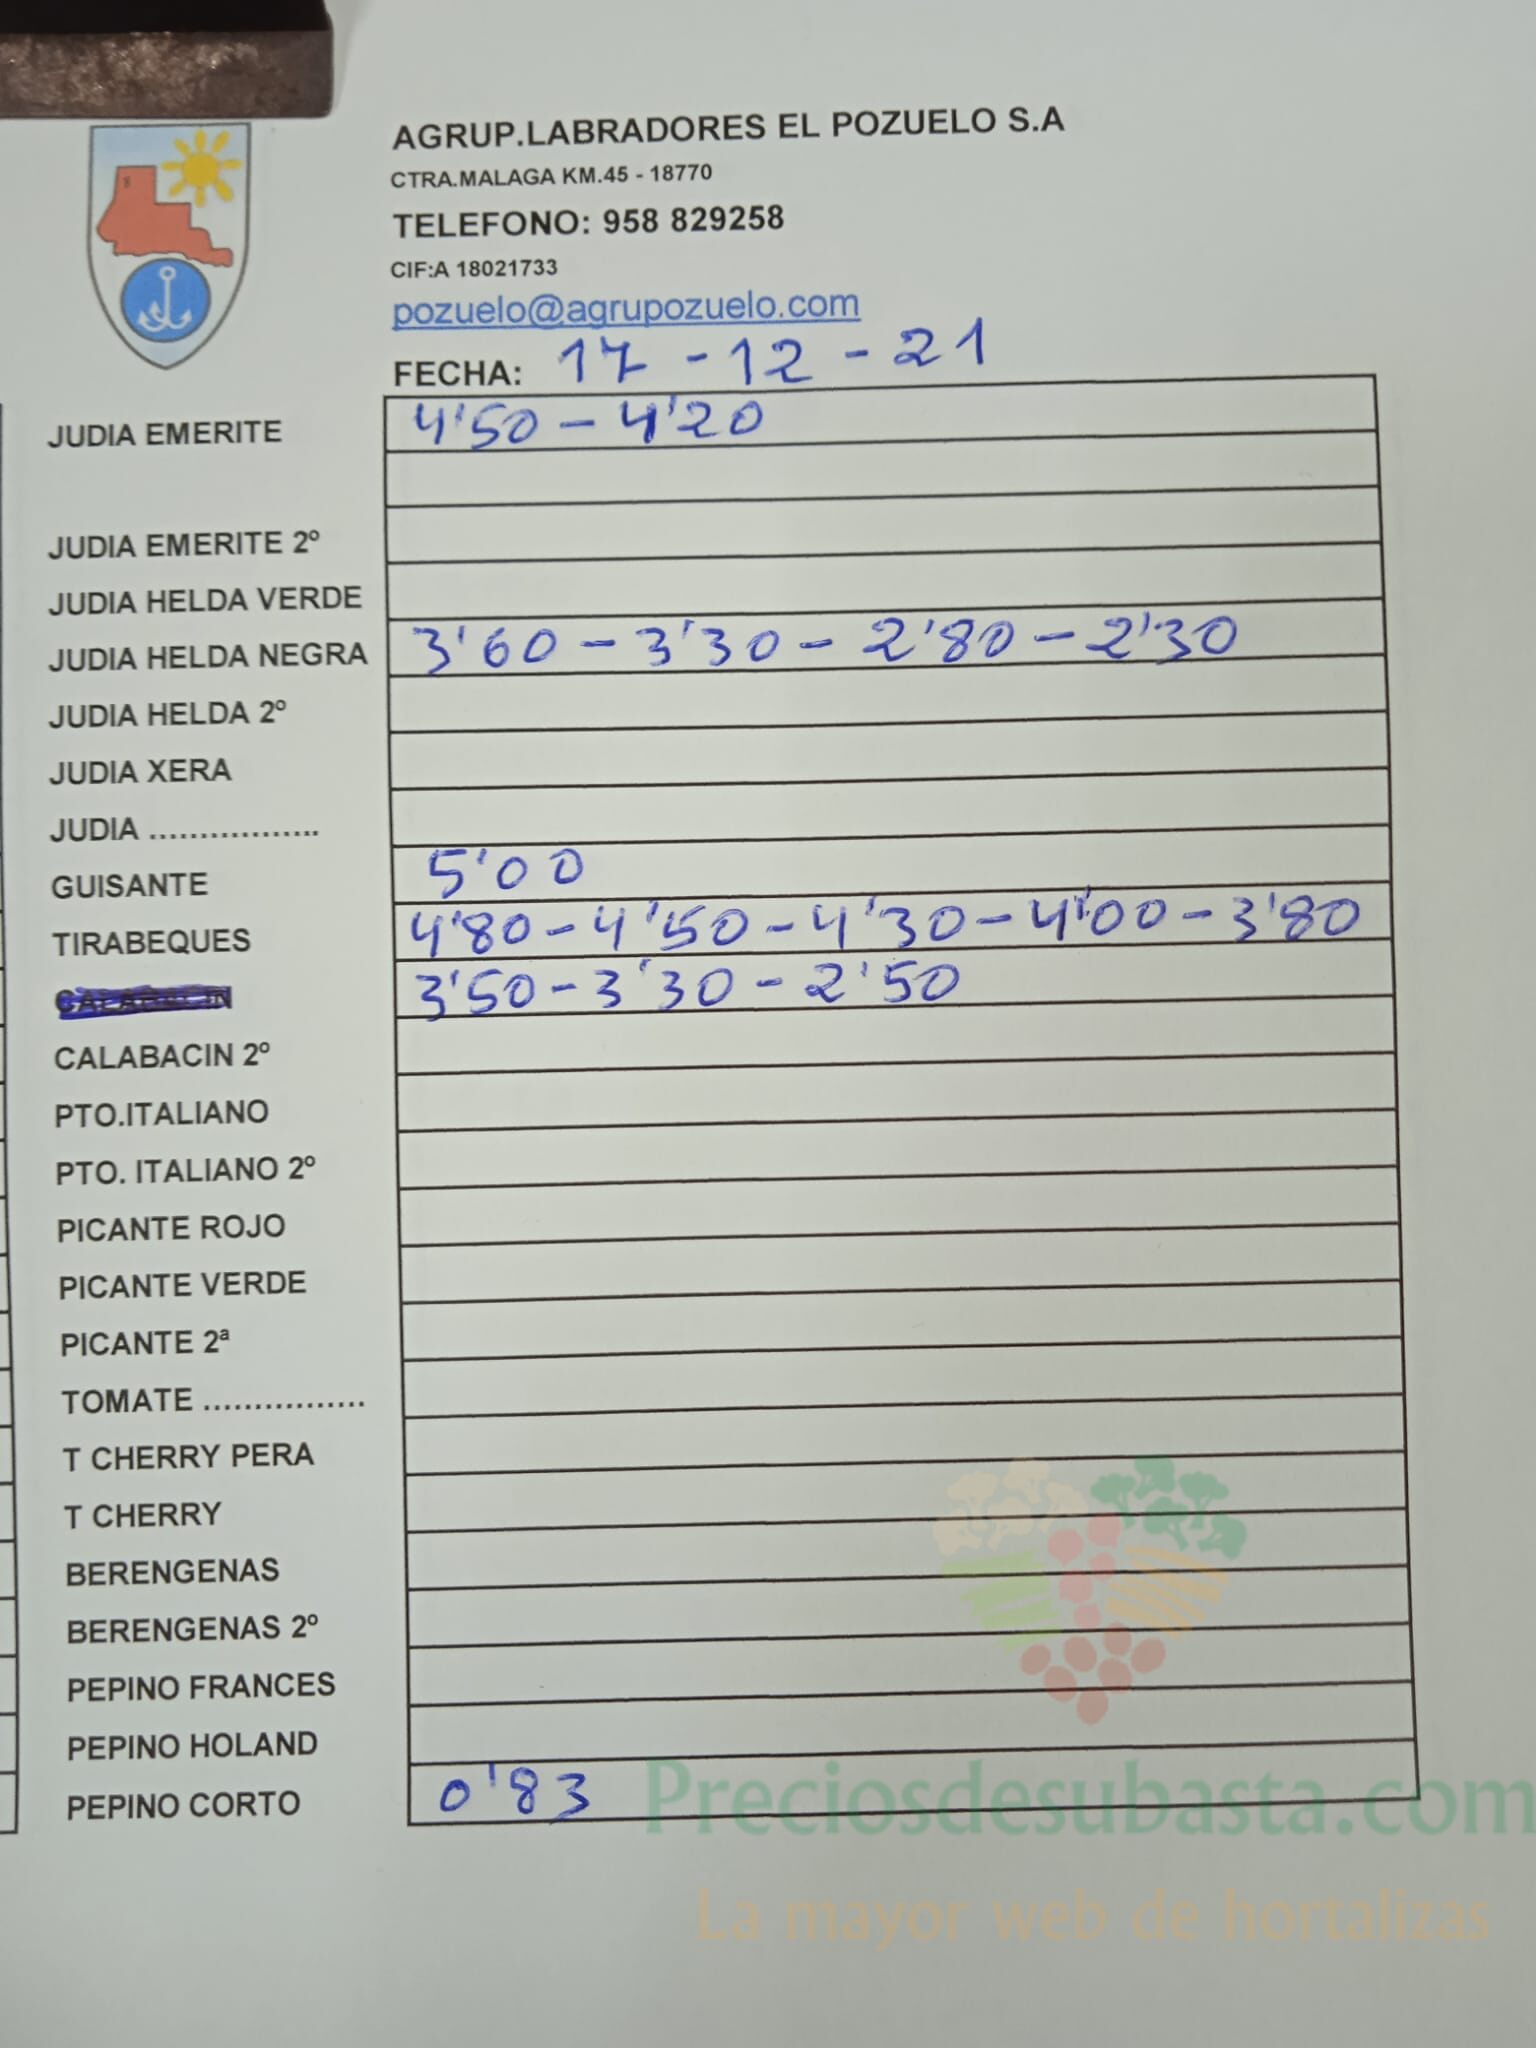 AGRUP.LABRADORES EL POZUELO S.A
CTRA.MALAGA KM.45 - 18770
TELEFONO: 958 829258
CIF:A 18021733
pozuelo@agrupozuelo.com
FECHA: 17-12-21
JUDIA EMERITE 4'50-4'20
JUDIA EMERITE 2º
JUDIA HELDA VERDE
JUDIA HELDA NEGRA 3'60-3'30-2'80-2'30
JUDIA HELDA 2º
JUDIA XERA
JUDIA .................
GUISANTE 5'00
TIRABEQUES 4'80-4'50-4'30-4'00-3'80
CALABACIN 3'50-3'30-2'50
CALABACIN 2º
PTO.ITALIANO
PTO. ITALIANO 2º
PICANTE ROJO
PICANTE VERDE
PICANTE 2ª
TOMATE ................
T CHERRY PERA
T CHERRY
BERENGENAS
BERENGENAS 2º
PEPINO FRANCES
PEPINO HOLAND
PEPINO CORTO 0'83
Preciosdesubasta.com
La mayor web de hortalizas